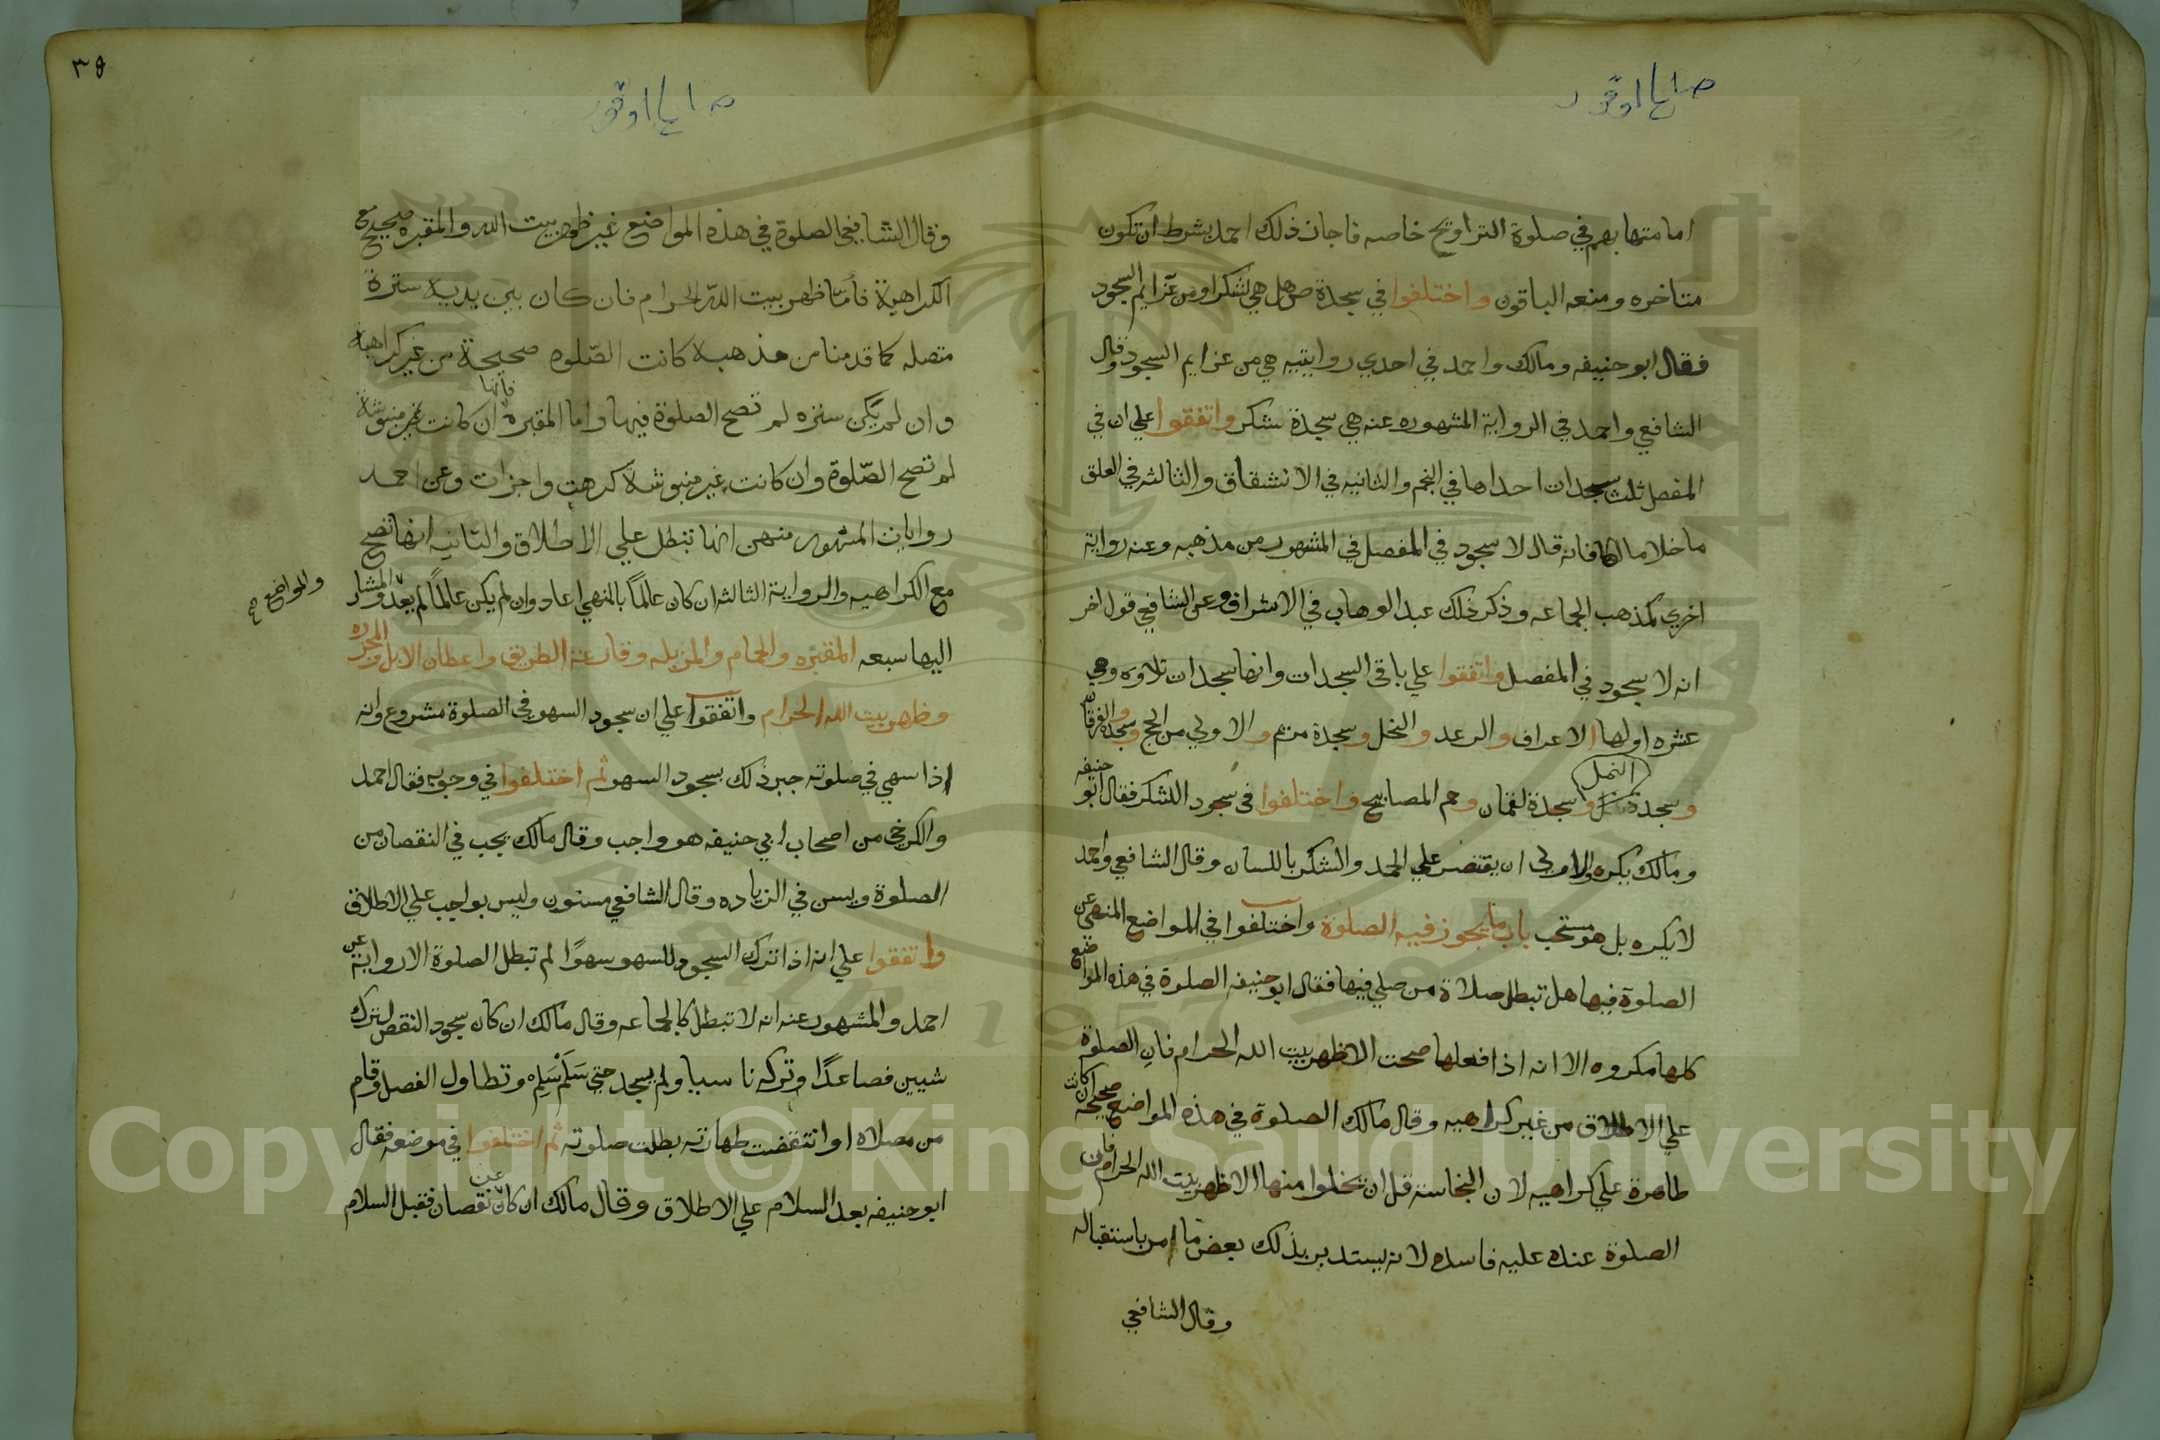 امامتها بهم في صلوة التراويح خاصه فاجاز ذلك احمد بشرط ان تكون
متاخره ومنعه الباقون واختلفوا في سجدة ص هل هي لشكر او من عزايم السجود
فقال ابو حنيفه ومالك واحمد في احدي روايتيه هي من عزايم السجود وقال
الشافعي واحمد في الرواية المشهوره عنه هي سجدة شكر واتفقوا علي ان في
المفصل ثلث سجدات احداها في النجم والثانيه في الانشقاق والثالثه في العلق
ما خلا مالكا فانه قال لا سجود في المفصل في المشهور من مذهبه وعنه رواية
اخري كمذهب الجماعه وذكر ذلك عبد الوهاب في الاشراف وعن الشافعي قول اخر
انه لا سجود في المفصل واتفقوا علي باقي السجدات وانها سجدات تلاوه وهي
عشره اولها الاعراف والرعد والنحل وسجدة مريم والاولي من الحج وسجدة الفرقان
وسجدة النمل وسجدة لقمان وحم المصابيح واختلفوا في سجود الشكر فقال ابو حنيفه
ومالك يكره والاولي ان يقتصر علي الحمد والشكر باللسان وقال الشافعي واحمد
لا يكره بل هو مستحب باب ما يجوز فيه الصلوة واختلفوا في المواضع المنهي عن
الصلوة فيها هل تبطل صلاة من صلي فيها فقال ابو حنيفه الصلوة في هذه المواضع
كلها مكروه الا انه اذا فعلها صحت الا ظهر بيت الله الحرام فان الصلوة
علي الاطلاق من غير كراهيه وقال مالك الصلوة في هذه المواضع صحيحه ان كانت
طاهرة علي كراهيه لان النجاسة قل ان تخلوا منها الا ظهر بيت الله الحرام فان
الصلوة عنده عليه فاسده لانه يستدبر بذلك بعض ما امر باستقباله
وقال الشافعي
٣٥
وقال الشافعي الصلوة في هذه المواضع غير ظهر بيت الله والمقبره صحيح مع
الكراهية فأما ظهر بيت الله الحرام فان كان بين يديه سترة
متصله كما قدمنا من مذهبه كانت الصلوه صحيحة من غير كراهية
وان لم يكن ستره لم تصح الصلوة فيها واما المقبره فانها ان كانت غير منبوشة
لم تصح الصلوة وان كانت غير منبوشة كرهت واجزات وعن احمد
روايات المشهور منهن انها تبطل علي الاطلاق والثانيه انها تصح
مع الكراهيه والرواية الثالثه ان كان عالمًا بالنهي اعاد وان لم يكن عالمًا لم يعد والمشار
والمواضع صح
اليها سبعه المقبره والحمام والمزبله وقارعة الطريق واعطان الابل والمجزره
وظهر بيت الله الحرام واتفقوا علي ان سجود السهو في الصلوة مشروع وانه
اذا سهي في صلوته جبر ذلك بسجود السهو ثم اختلفوا في وجوبه فقال احمد
والكرخي من اصحاب ابي حنيفه هو واجب وقال مالك يجب في النقصان من
الصلوة ويسن في الزياده وقال الشافعي مسنون وليس بواجب علي الاطلاق
واتفقوا علي انه اذا ترك السجود للسهو سهوًا لم تبطل الصلوة الا رواية عن
احمد والمشهور عنه انه لا تبطل كالجماعه وقال مالك ان كان سجود النقص لترك
شيين فصاعدًا وتركه ناسيا ولم يسجد حتي سلم وتطاول الفصل وقام
من مصلاه او انتقضت طهارته بطلت صلوته ثم اختلفوا في موضعه فقال
ابو حنيفه بعد السلام علي الاطلاق وقال مالك ان كان عن نقصان فقبل السلام
Copyright © King Saud University
1957